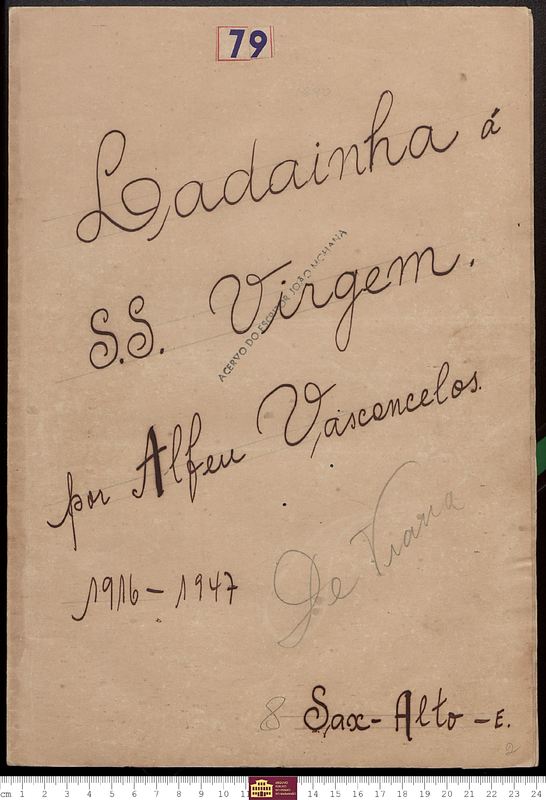 79
Ladainha á
S.S. Virgem.
ACERVO DO ESCRITOR JOÃO MOHANA
por Alfeu Vasconcelos.
1916 - 1947
De Viana
8 Sax - Alto - E.
2
cm 1 2 3 4 5 6 7 8 9 10 11 14 15 16 17 18 19 20 21 22 23 24